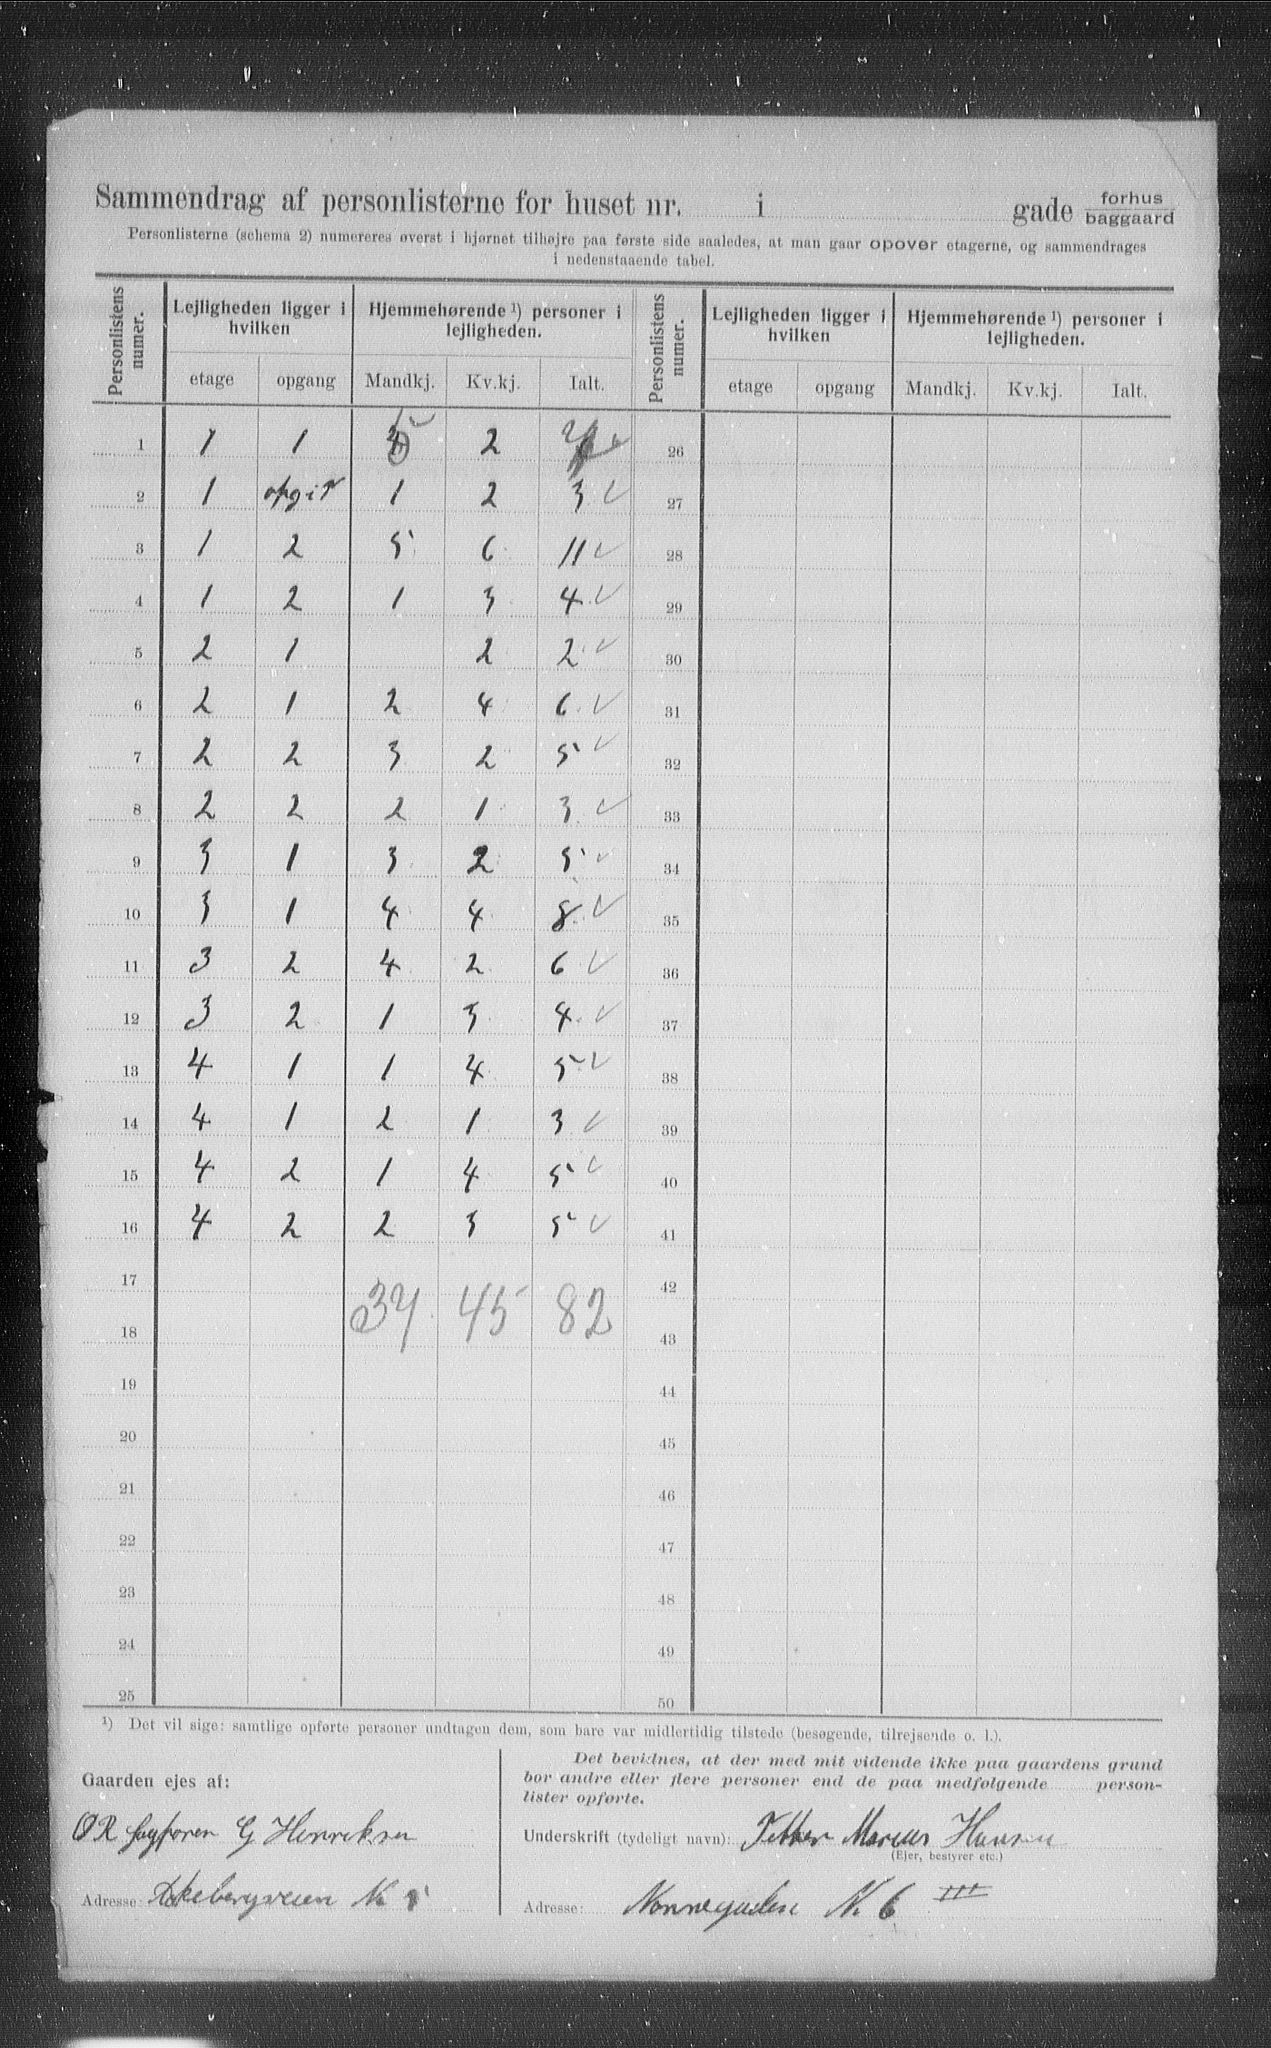 Sammendrag af personlisterne for huset nr. i gade forhus baggaard
Personlisterne (schema 2) numereres øverst i hjørnet tilhøjre paa første side saaledes, at man gaar opover etagerne, og sammendrages
i nedenstaaende tabel.
Personlistens numer. Lejligheden ligger i hvilken Hjemmehørende ¹) personer i lejligheden. Personlistens numer. Lejligheden ligger i hvilken Hjemmehørende ¹) personer i lejligheden.
etage opgang Mandkj. Kv.kj. Ialt. etage opgang Mandkj. Kv.kj. Ialt.
1 1 1 5 2 26
2 1 1 2 3 27
3 1 2 5 6 11 28
4 1 2 1 3 4 29
5 2 1 2 2 30
6 2 1 2 4 6 31
7 2 2 3 2 5 32
8 2 2 2 1 3 33
9 3 1 3 2 5 34
10 3 1 4 4 8 35
11 3 2 4 2 6 36
12 3 2 1 3 4 37
13 4 1 1 4 5 38
14 4 1 2 1 3 39
15 4 2 1 4 5 40
16 4 2 2 3 5 41
17 42
37 45 82
18 43
19 44
20 45
21 46
22 47
23 48
24 49
25 50
¹) Det vil sige: samtlige opførte personer undtagen dem, som bare var midlertidig tilstede (besøgende, tilrejsende o. l.).
Gaarden ejes af:
G Henriksen
Adresse: Ekebergveien N.
Det bevidnes, at der med mit vidende ikke paa gaardens grund
bor andre eller flere personer end de paa medfølgende person-
lister opførte.
Underskrift (tydeligt navn): Marius Hansen
(Ejer, bestyrer etc.)
Adresse: Nonnegaden N. 6 III